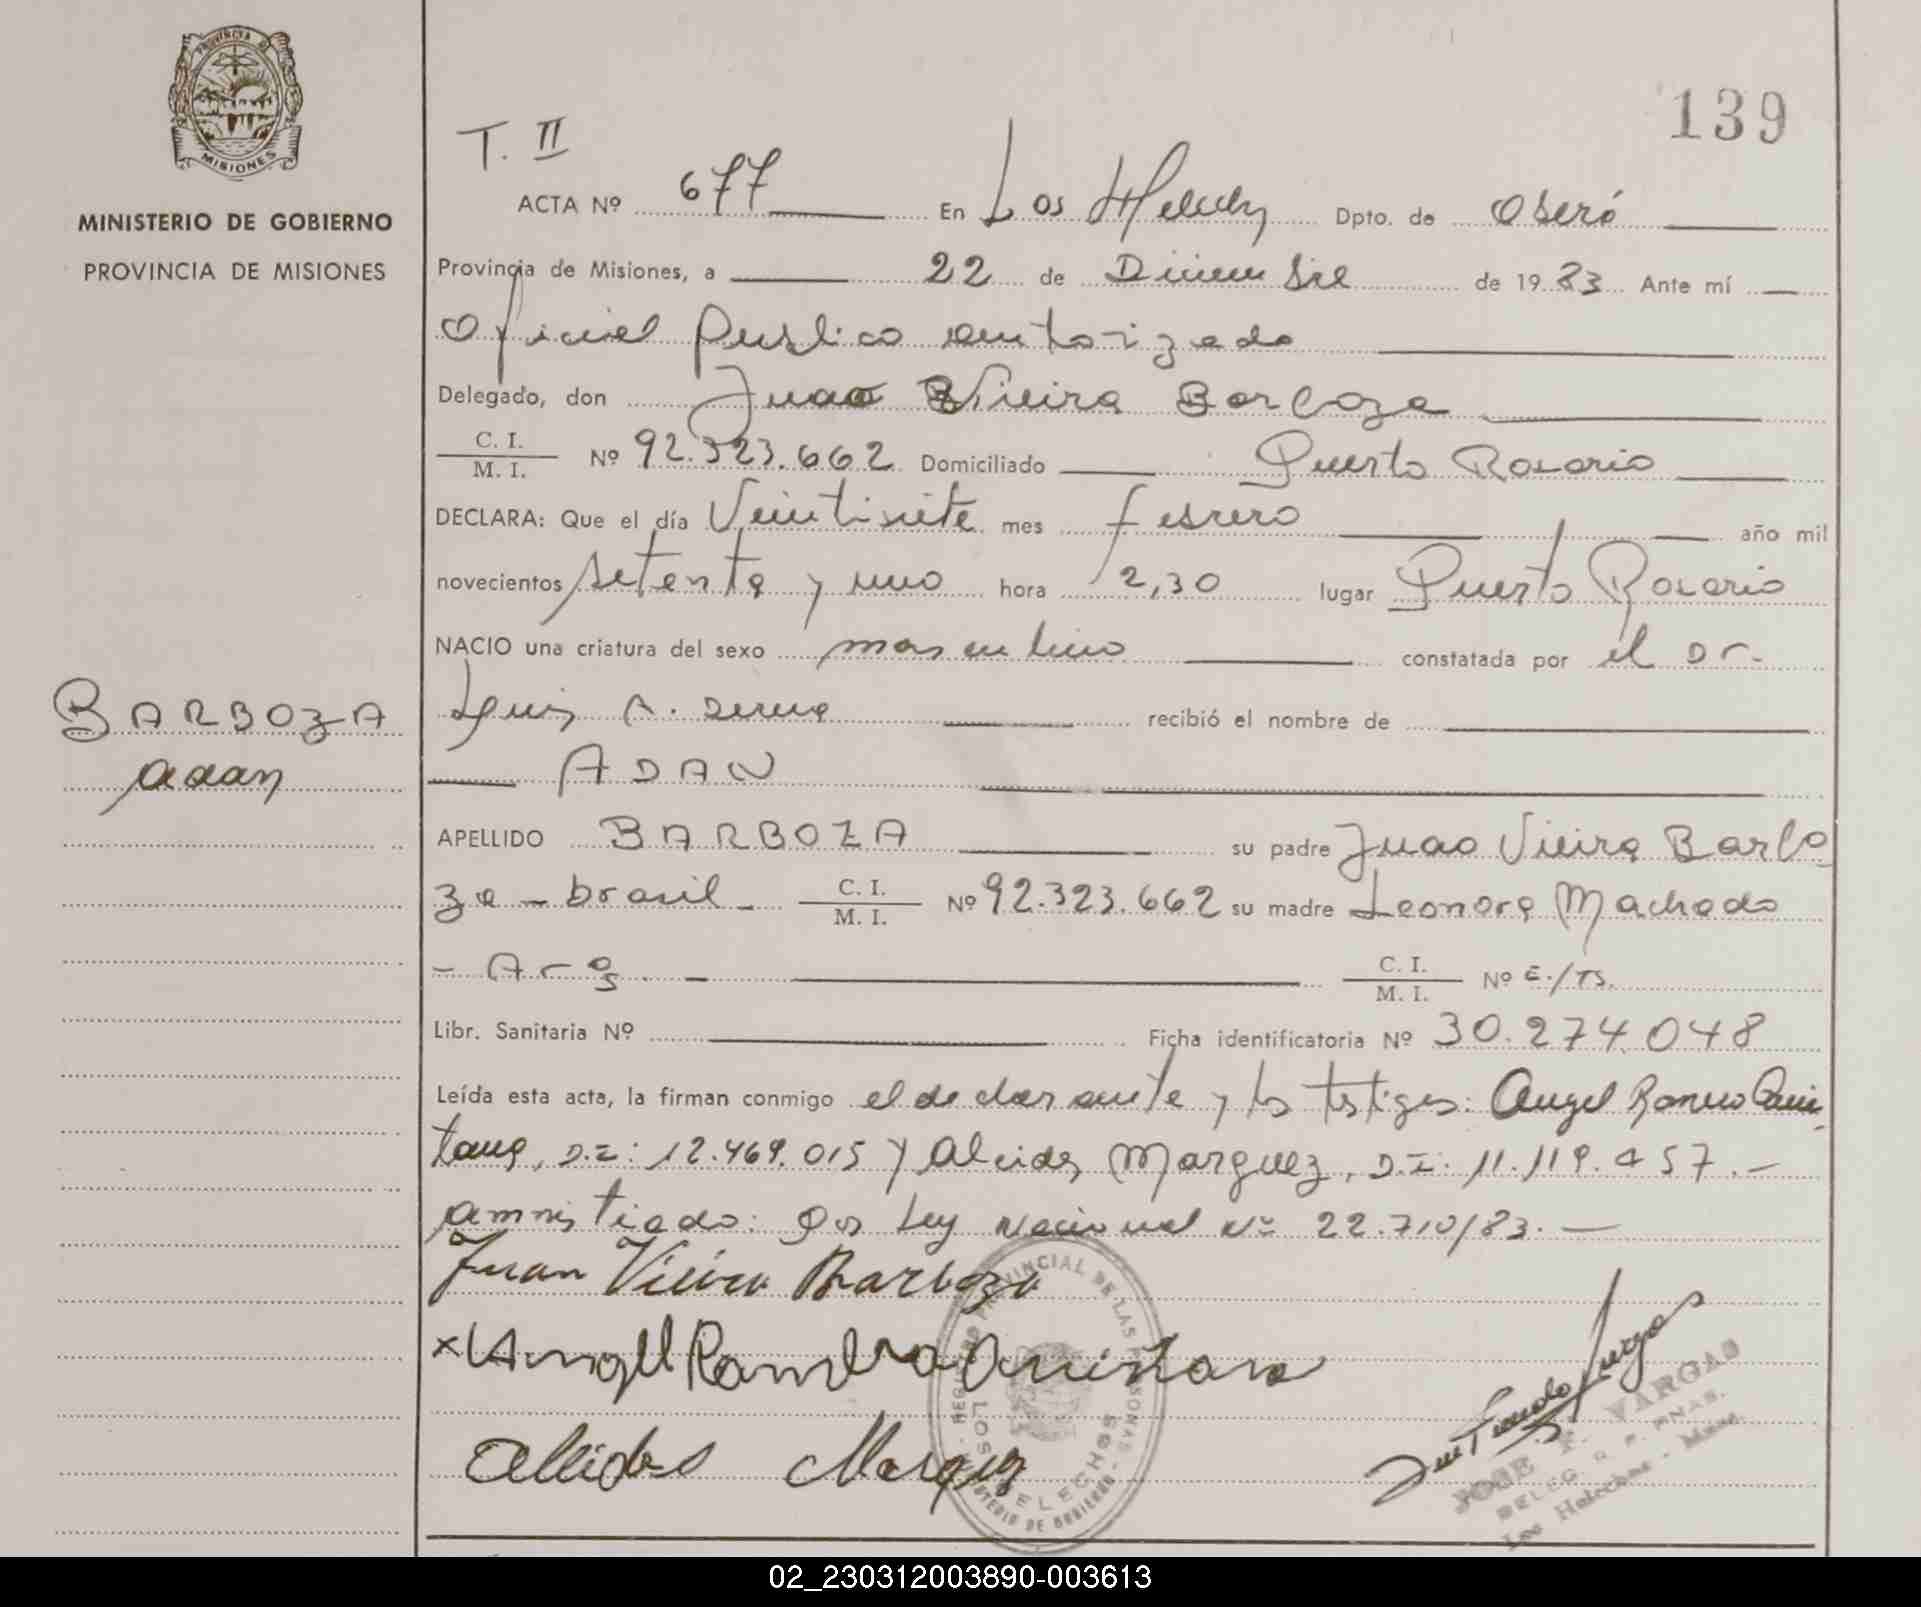 PROVINCIA DE
MISIONES
MINISTERIO DE GOBIERNO
PROVINCIA DE MISIONES
BARBOZA
Adan
139
T. II
ACTA Nº 677 En Los Helechos Dpto. de Oberá
Provincia de Misiones, a 22 de Diciembre de 1983 Ante mí
Oficial Publico autorizado
Delegado, don Juao Vieira Barboza
C. I. / M. I. Nº 92.323.662 Domiciliado Puerto Rosario
DECLARA: Que el día Veintisiete mes febrero año mil
novecientos setenta y uno hora 12,30 lugar Puerto Rosario
NACIO una criatura del sexo masculino constatada por el Dr.
Luis A. recibió el nombre de
ADAN
APELLIDO BARBOZA su padre Juao Vieira Barbo
za - brasil - C. I. / M. I. Nº 92.323.662 su madre Leonora Machado
- Arg. - C. I. / M. I. Nº E./TS.
Libr. Sanitaria Nº Ficha identificatoria Nº 30.274.048
Leída esta acta, la firman conmigo el declarante y los testigos: Angel Ramon Quin
tana, D.I: 12.469.015 y Alcides Marquez, D.I: 11.119.457.-
amnistiado: por Ley Nacional Nº 22.710/83.-
Juan Vieira Barboza
x Angel Ramon Quintana
Alcides Marquez
REGISTRO PROVINCIAL DE LAS PERSONAS
LOS HELECHOS
MINISTERIO DE GOBIERNO
JOSE F. VARGAS
DELEG. R. P. PNAS.
Los Helechos - Mnes.
02_230312003890-003613